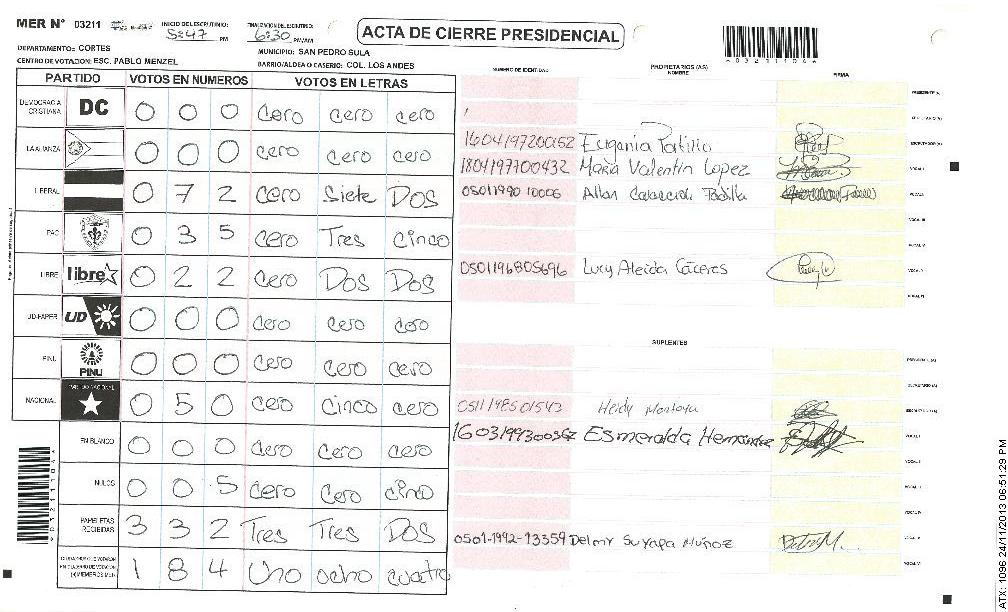 MER N° 03211
INICIO DEL ESCRUTINIO: 5:47 PM
FINALIZACION DEL ESCRUTINIO: 6:30 PM/AM
ACTA DE CIERRE PRESIDENCIAL
*03211104*
DEPARTAMENTO: CORTES
MUNICIPIO: SAN PEDRO SULA
CENTRO DE VOTACION: ESC. PABLO MENZEL
BARRIO/ALDEA O CASERIO: COL. LOS ANDES
PARTIDO VOTOS EN NUMEROS VOTOS EN LETRAS
NUMERO DE IDENTIDAD PROPIETARIOS (AS) NOMBRE FIRMA
DEMOCRACIA CRISTIANA DC 0 0 0 cero cero cero
LA ALIANZA 0 0 0 cero cero cero
LIBERAL 0 7 2 cero Siete DOS
PAC 0 3 5 cero Tres cinco
LIBRE libre 0 2 2 cero DOS DOS
UD-FAPER UD 0 0 0 cero cero cero
PINU PINU 0 0 0 cero cero cero
NACIONAL PARTIDO NACIONAL 0 5 0 cero cinco cero
EN BLANCO 0 0 0 cero cero cero
NULOS 0 0 5 cero cero cinco
PAPELETAS RECIBIDAS 3 3 2 Tres Tres DOS
1 8 4 Uno ocho cuatro
PRESIDENTE (A)
SECRETARIO (A)
1604197200152 Eugenia Portillo ESCRUTADOR (A)
1804197700432 Maria Valentin Lopez VOCAL I
05011990 10006 Allan Padilla VOCAL II
VOCAL III
VOCAL IV
0501196805696 Lucy Aleida Cáceres VOCAL V
VOCAL VI
SUPLENTES
PRESIDENTE (A)
SECRETARIO (A)
0511198501543 Heidy Montoya ESCRUTADOR (A)
Esmeralda Hernández VOCAL I
VOCAL II
VOCAL III
VOCAL IV
0501-1992-13359 Delmy Suyapa Muñoz VOCAL V
VOCAL VI
*03211104*
ATX: 1096 24/11/2013 06:51:29 PM